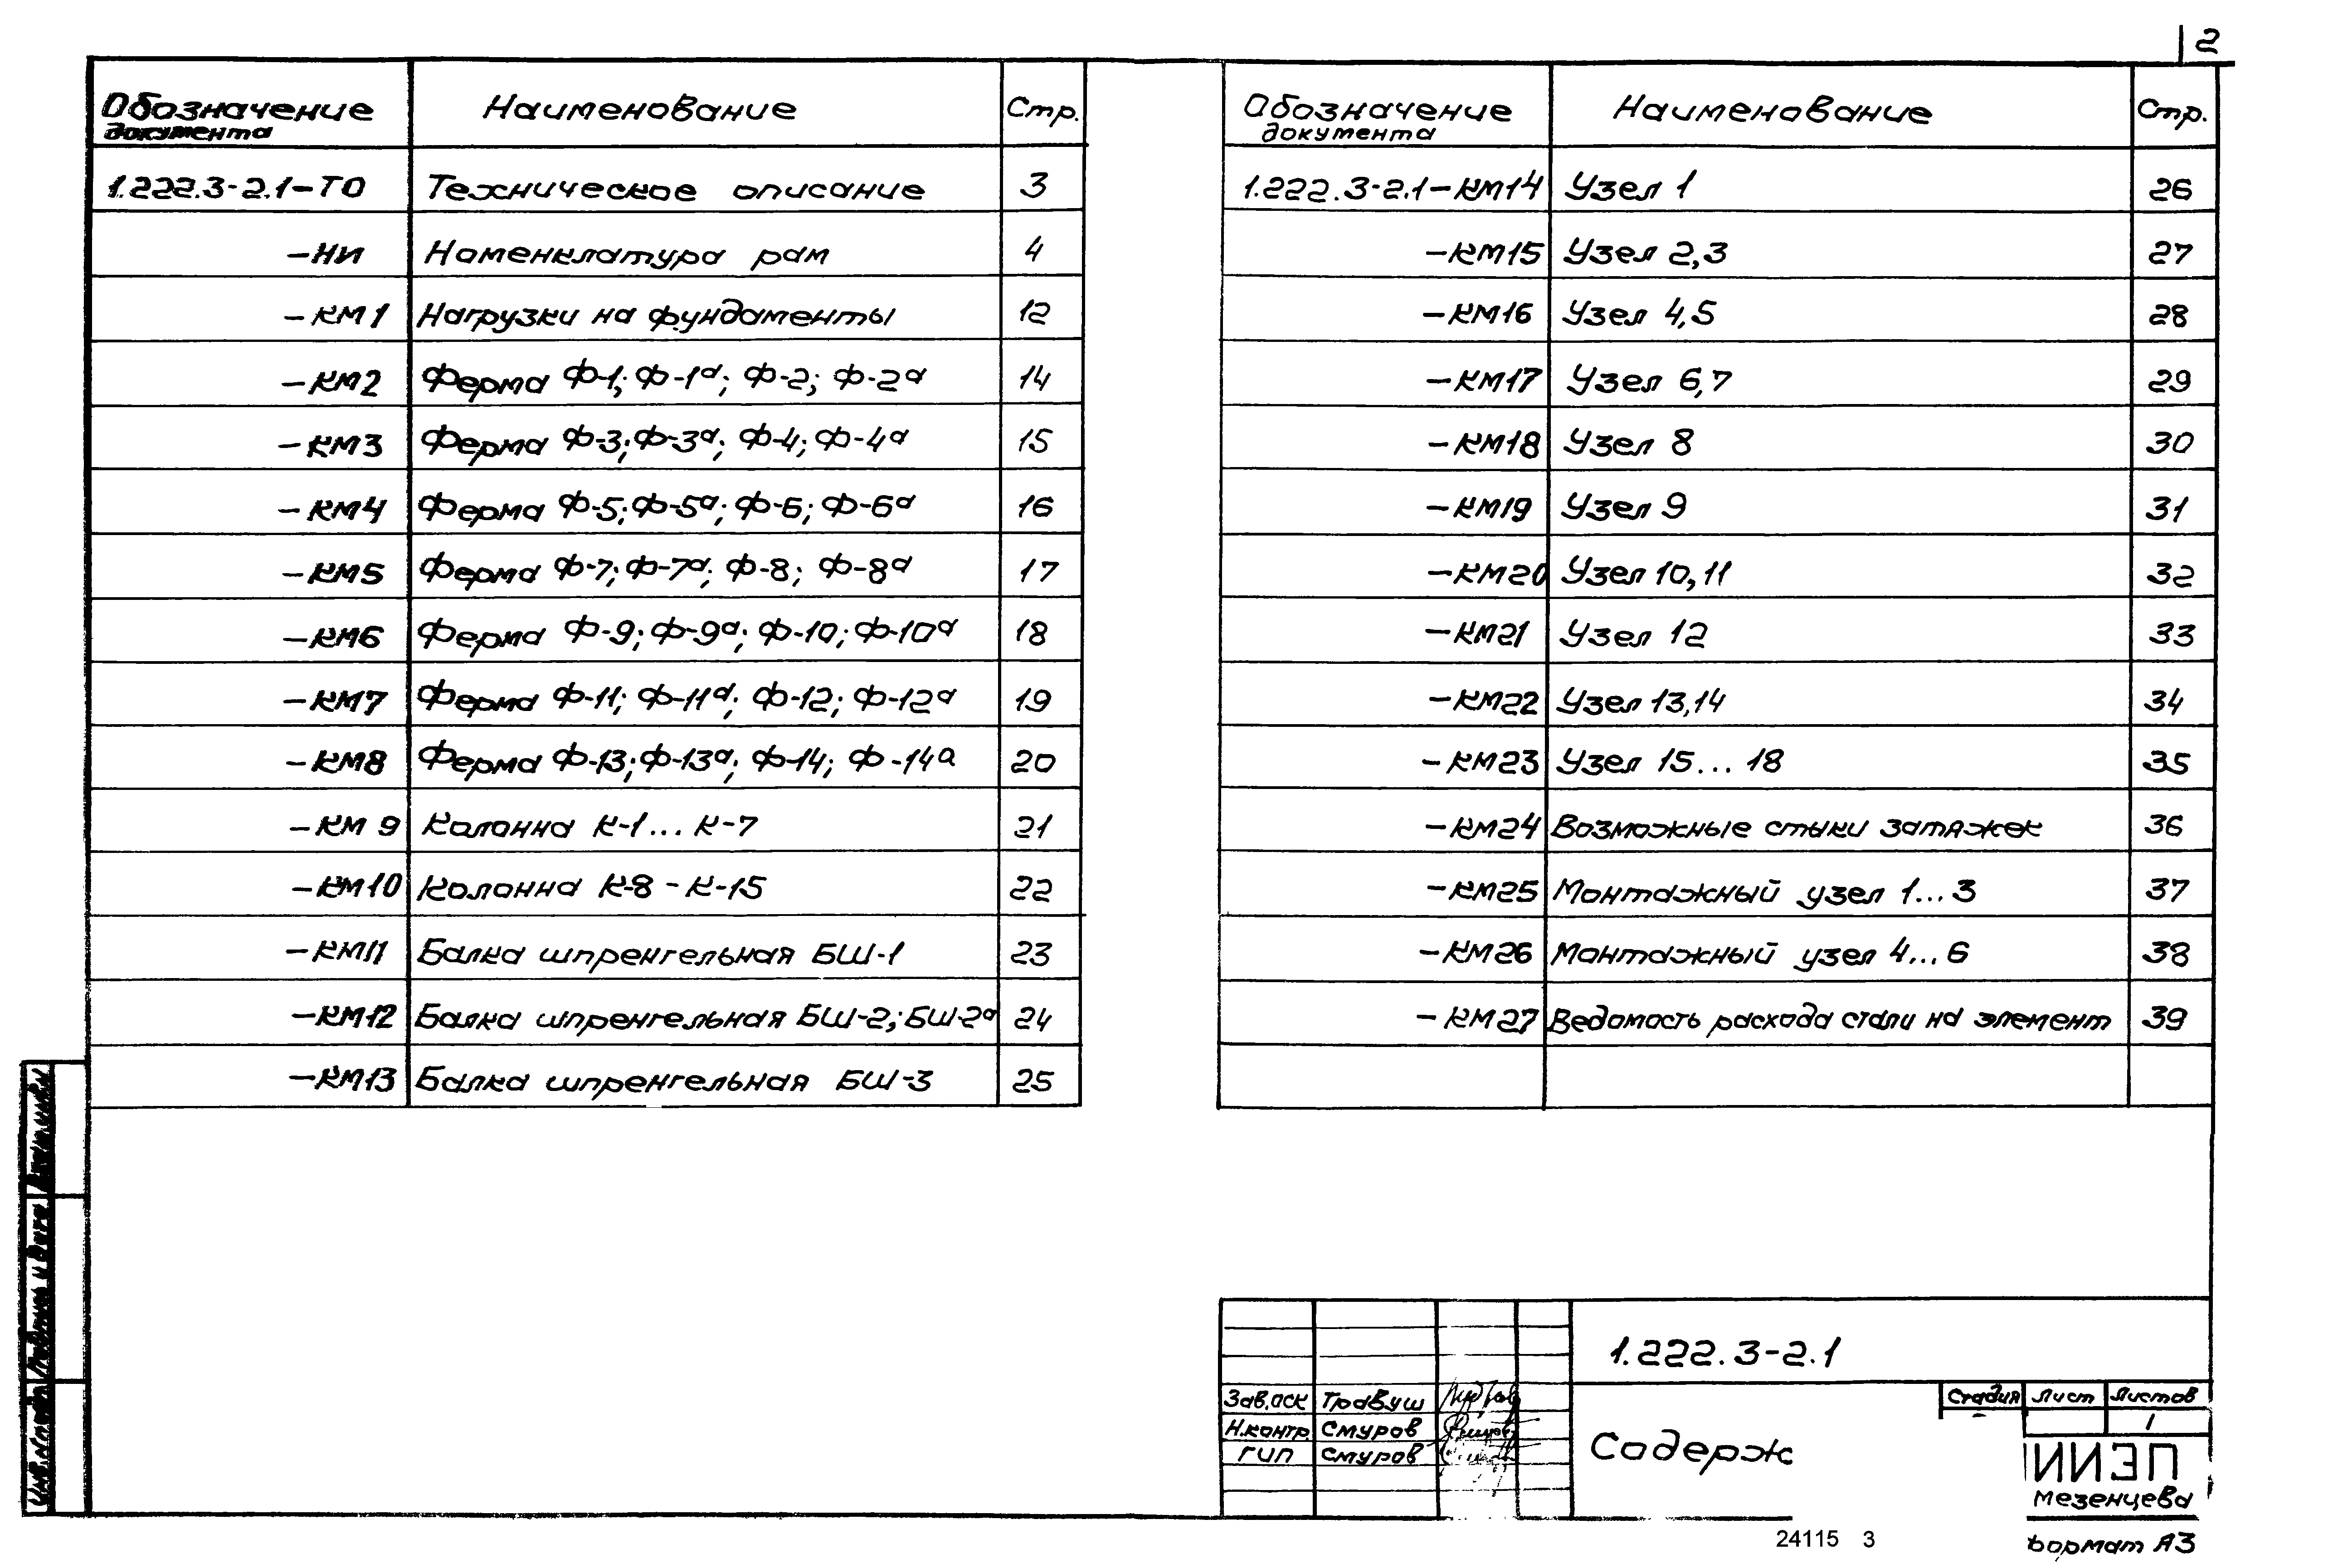 2
Обозначение документа Наименование Стр.
1.222.3-2.1-ТО Техническое описание 3
-НИ Номенклатура рам 4
-КМ1 Нагрузки на фундаменты 12
-КМ2 Ферма Ф-1; Ф-1а; Ф-2; Ф-2а 14
-КМ3 Ферма Ф-3; Ф-3а; Ф-4; Ф-4а 15
-КМ4 Ферма Ф-5; Ф-5а; Ф-6; Ф-6а 16
-КМ5 Ферма Ф-7; Ф-7а; Ф-8; Ф-8а 17
-КМ6 Ферма Ф-9; Ф-9а; Ф-10; Ф-10а 18
-КМ7 Ферма Ф-11; Ф-11а; Ф-12; Ф-12а 19
-КМ8 Ферма Ф-13; Ф-13а; Ф-14; Ф-14а 20
-КМ 9 Колонна К-1...К-7 21
-КМ10 Колонна К-8 - К-15 22
-КМ11 Балка шпренгельная БШ-1 23
-КМ12 Балка шпренгельная БШ-2; БШ-2а 24
-КМ13 Балка шпренгельная БШ-3 25
Обозначение документа Наименование Стр.
1.222.3-2.1-КМ14 Узел 1 26
-КМ15 Узел 2,3 27
-КМ16 Узел 4,5 28
-КМ17 Узел 6,7 29
-КМ18 Узел 8 30
-КМ19 Узел 9 31
-КМ20 Узел 10,11 32
-КМ21 Узел 12 33
-КМ22 Узел 13,14 34
-КМ23 Узел 15...18 35
-КМ24 Возможные стыки затяжек 36
-КМ25 Монтажный узел 1...3 37
-КМ26 Монтажный узел 4...6 38
-КМ27 Ведомость расхода стали на элемент 39
Инв.№подл. Подпись и дата Взам.инв.№
1.222.3-2.1
Зав.аск Травуш
Н.контр. Смуров
ГИП Смуров
Содерж
Стадия Лист Листов
1
ПЕЗИИ
Мезенцева
24115 3
формат А3